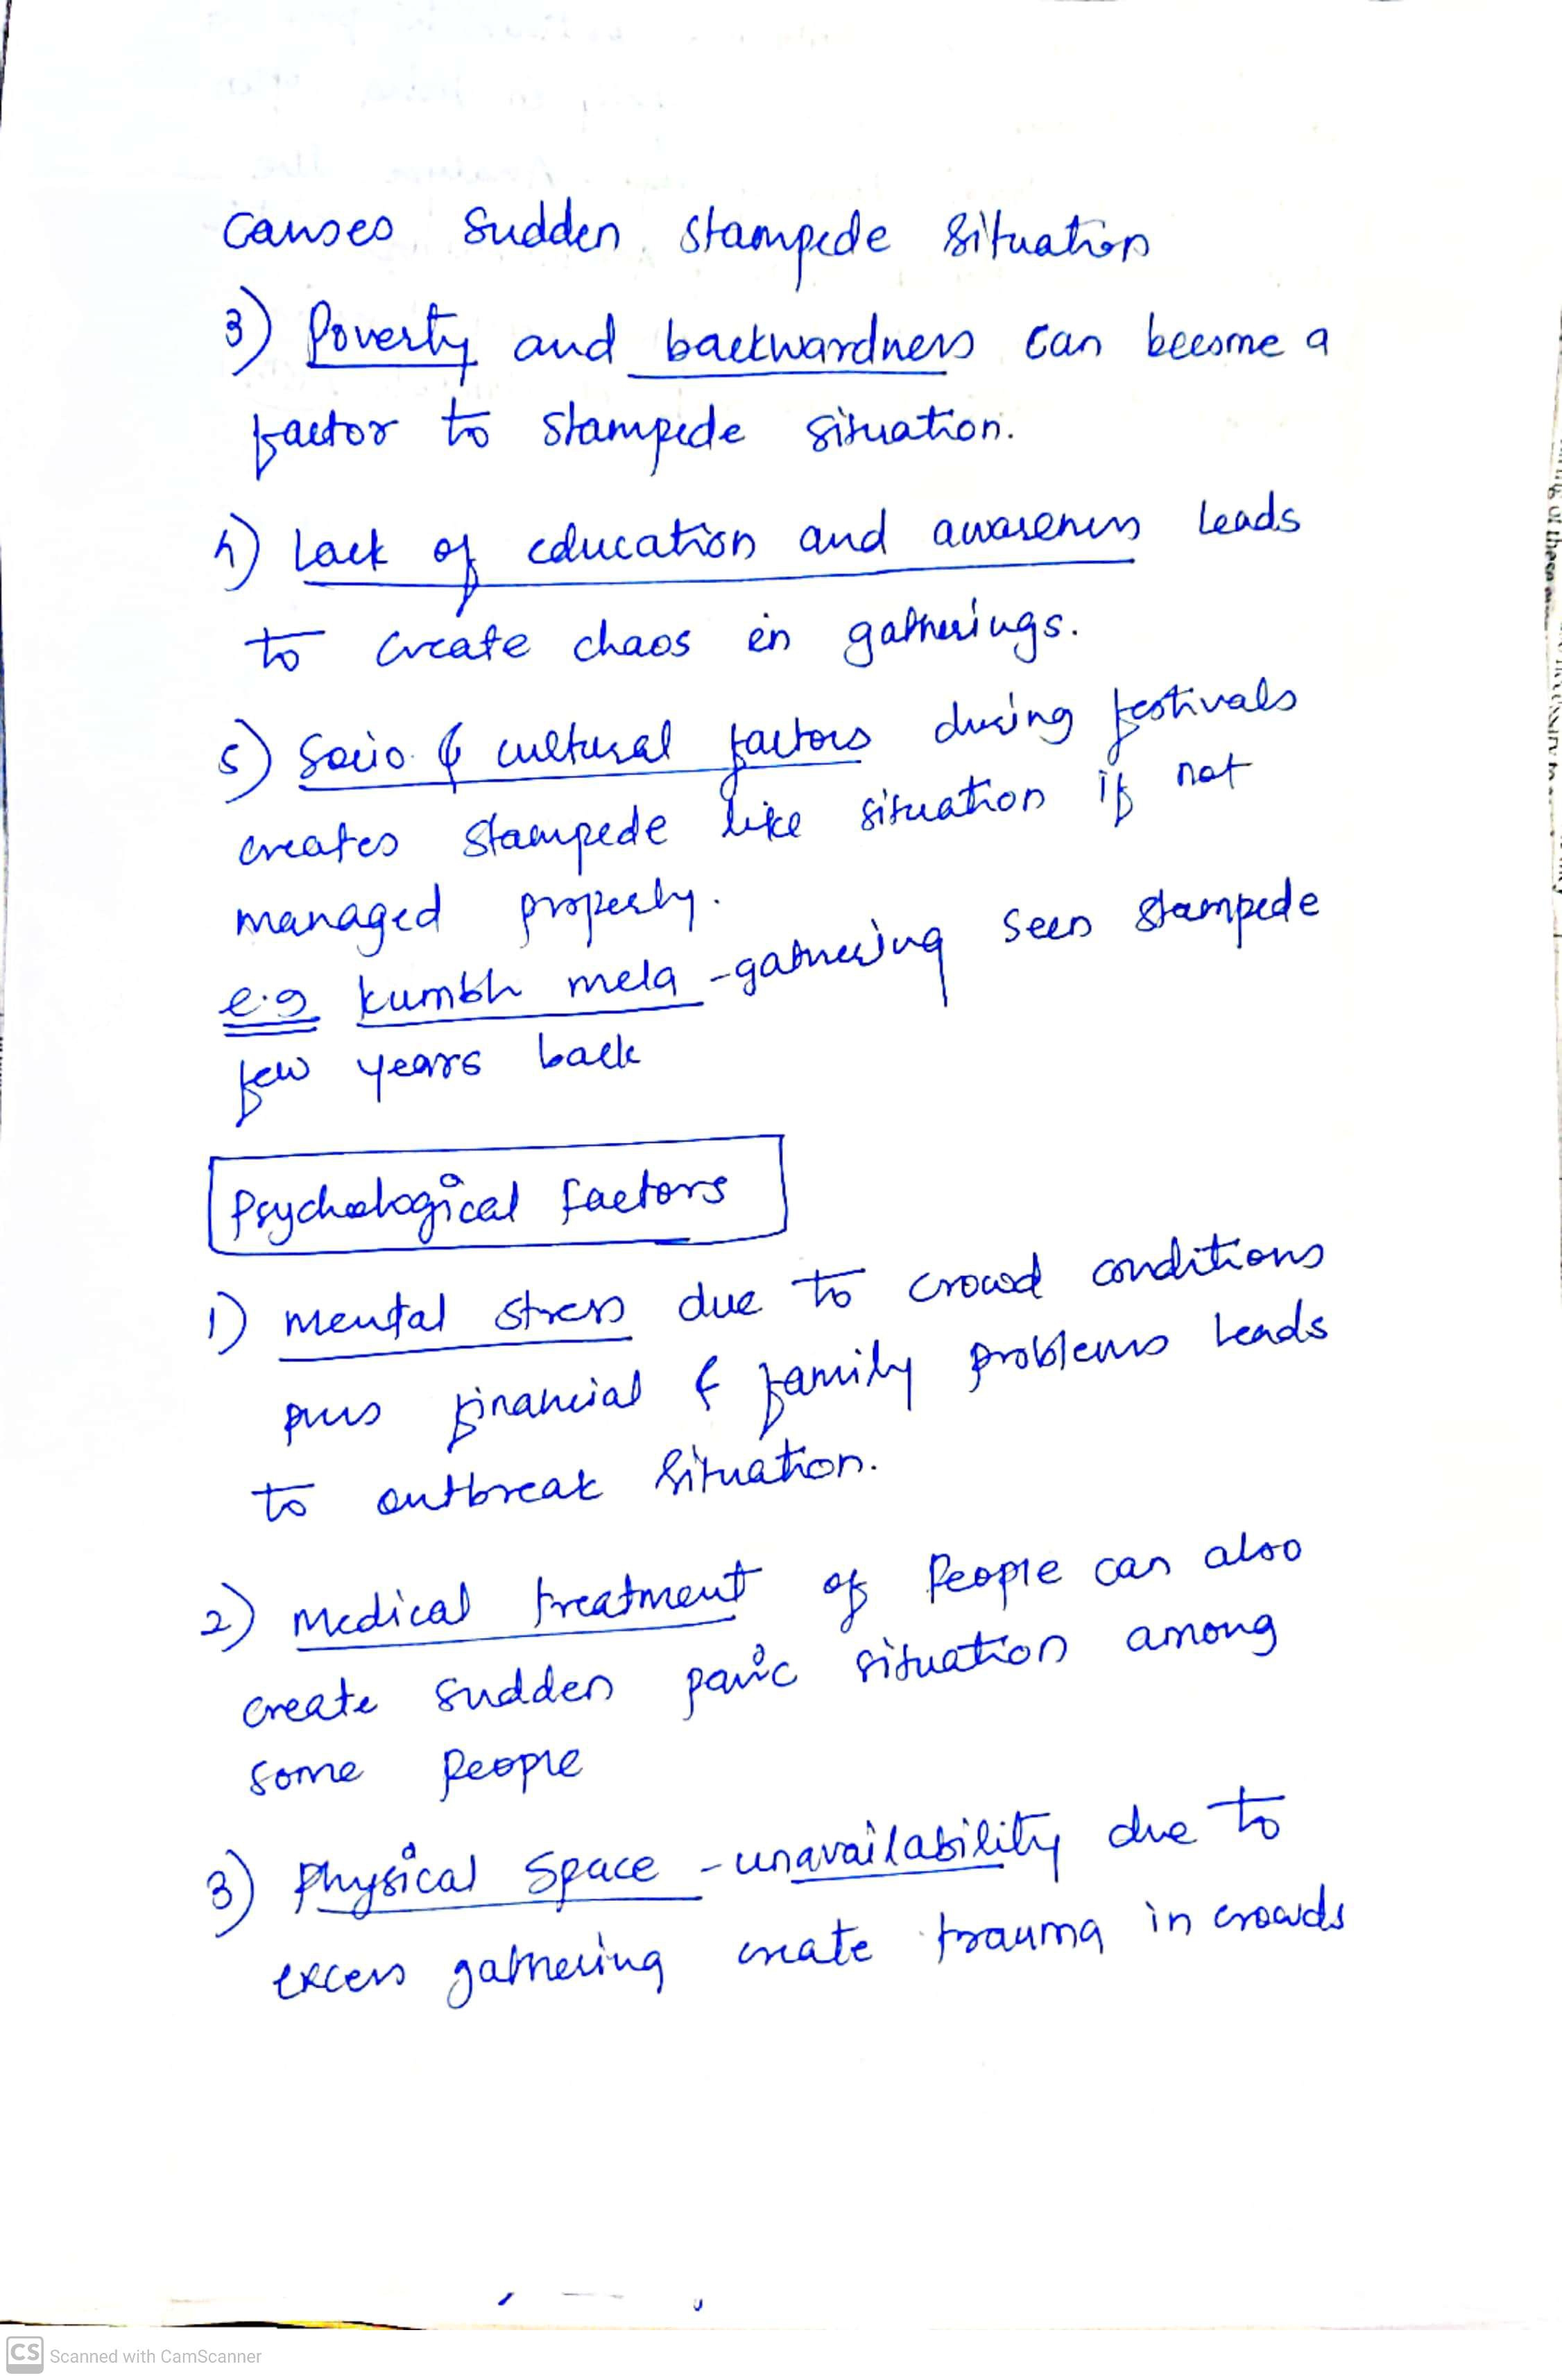 causes sudden stampede situation
3) Poverty and backwardness can become a
factor to stampede situation.
4) Lack of education and awareness leads
to create chaos in gatherings.
5) Socio & cultural factors during festivals
creates stampede like situation if not
managed properly.
e.g kumbh mela - gathering seen stampede
few years back
Psychological factors
1) Mental stress due to crowd conditions
plus financial & family problems leads
to outbreak situation.
2) Medical treatment of People can also
create sudden panic situation among
some people
3) Physical space - unavailability due to
excess gathering create trauma in crowds
CS Scanned with CamScanner